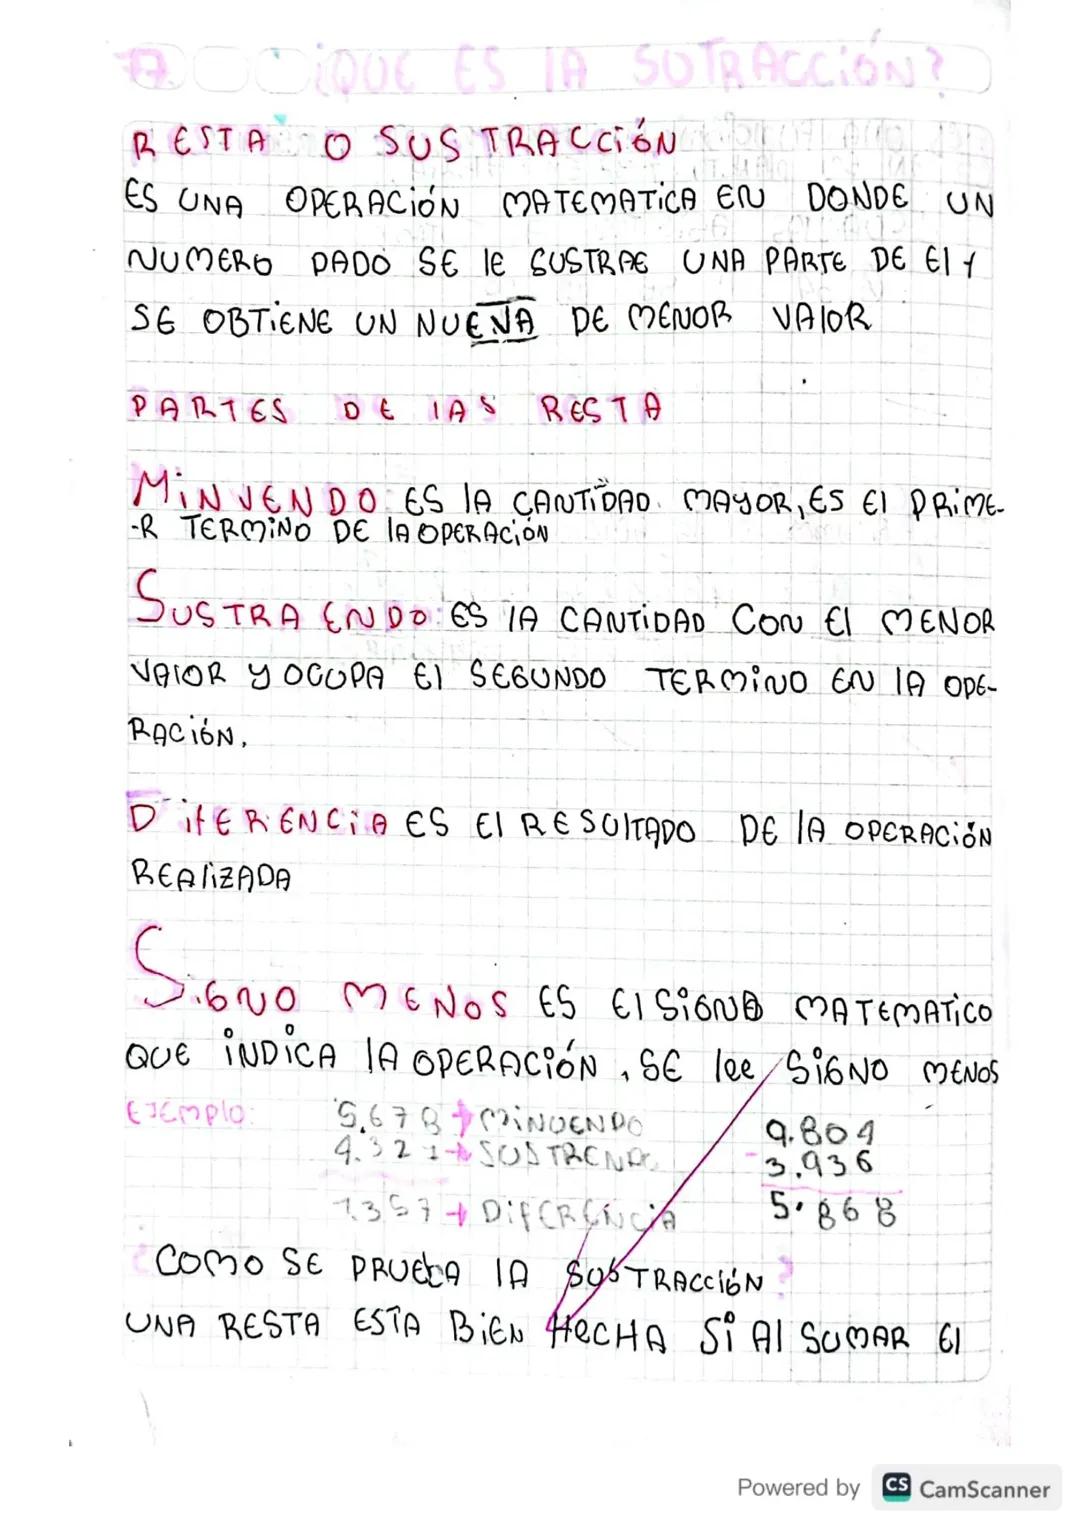 ¿QUE ES lA SUTRACCIÓN?
RESTA O SUSTRACCIÓN
ES UNA OPERACIÓN MATEMATICA EN DONDE UN
NUMERO DADO SE le SUSTRAE UNA PARTE DE El Y
SE OBTIENE UN NUEVA DE MENOR VAlOR
PARTES DE lAS RESTA
MINUENDO ES lA CANTIDAD MAYOR, ES El PRIME-
-R TERMINO DE lA OPERACIÓN
SUSTRAENDO: ES lA CANTIDAD CON El MENOR
VAlOR Y OCUPA El SEGUNDO TERMINO EN lA OPE-
RACIÓN.
DIFERENCIA ES El RESUlTADO DE lA OPERACIÓN
REAlIZADA
SIGNO MENOS ES El SIGNO MATEMATICO
QUE INDICA lA OPERACIÓN, SE lee SIGNO MENOS
EJEMPlO: 5.678 → MINUENDO 9.804
4.321 → SUSTRENDO - 3.936
1.357 → DIFERENCIA 5.868
¿COMO SE PRUEBA lA SUSTRACCIÓN?
UNA RESTA ESTA BIEN HECHA SI Al SUMAR El
Powered by CS CamScanner